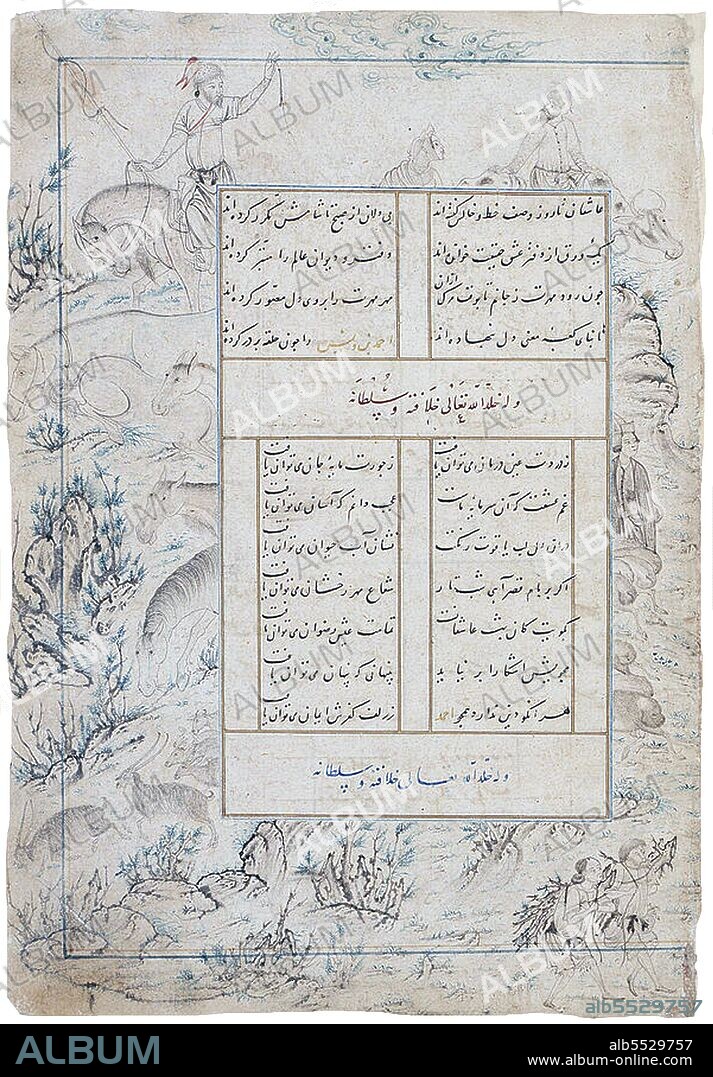 عاشقان تا روز وصف خط و خالش گفته اند بی دلان از صبح تا شامش مکرر کرده اند
یک ورق از دفتر عشق حقیقت خوانده اند دفتر و دیوان عالم را کرده اند
چون رود مهرت ز جانم تا بوقت مرک ازان مهر مهرت را بروی دل مصور کرده اند
تا بنای کعبه معنی دل بنهاده اند احمد درویش را چون حلقه بر در کرده اند
وله خلد الله تعالی خلافته و سلطانه
ز دردت عین درمان می توان یافت ز جورت مایه جان می توان یافت
غم عشقت که آن سرمایه ماست عجب دانم که آسان می توان یافت
لب یاقوت رنگت نشان آب حیوان می توان یافت
اکر بر بام قصر آیی شب تار شعاع مهر رخشان می توان یافت
بکویت کان بهشت عاشقانست تمامت عیش رضوان می توان یافت
مجویش اشکارا بر نیاید پنهانی که پنهان می توان یافت
هر انکو دین ندارد همچو احمد ز زلف کفرش ایمان می توان یافت
وله خلد الله تعالی خلافته و سلطانه
alb5529757
ALBUM
alb5529757
www.album-online.com